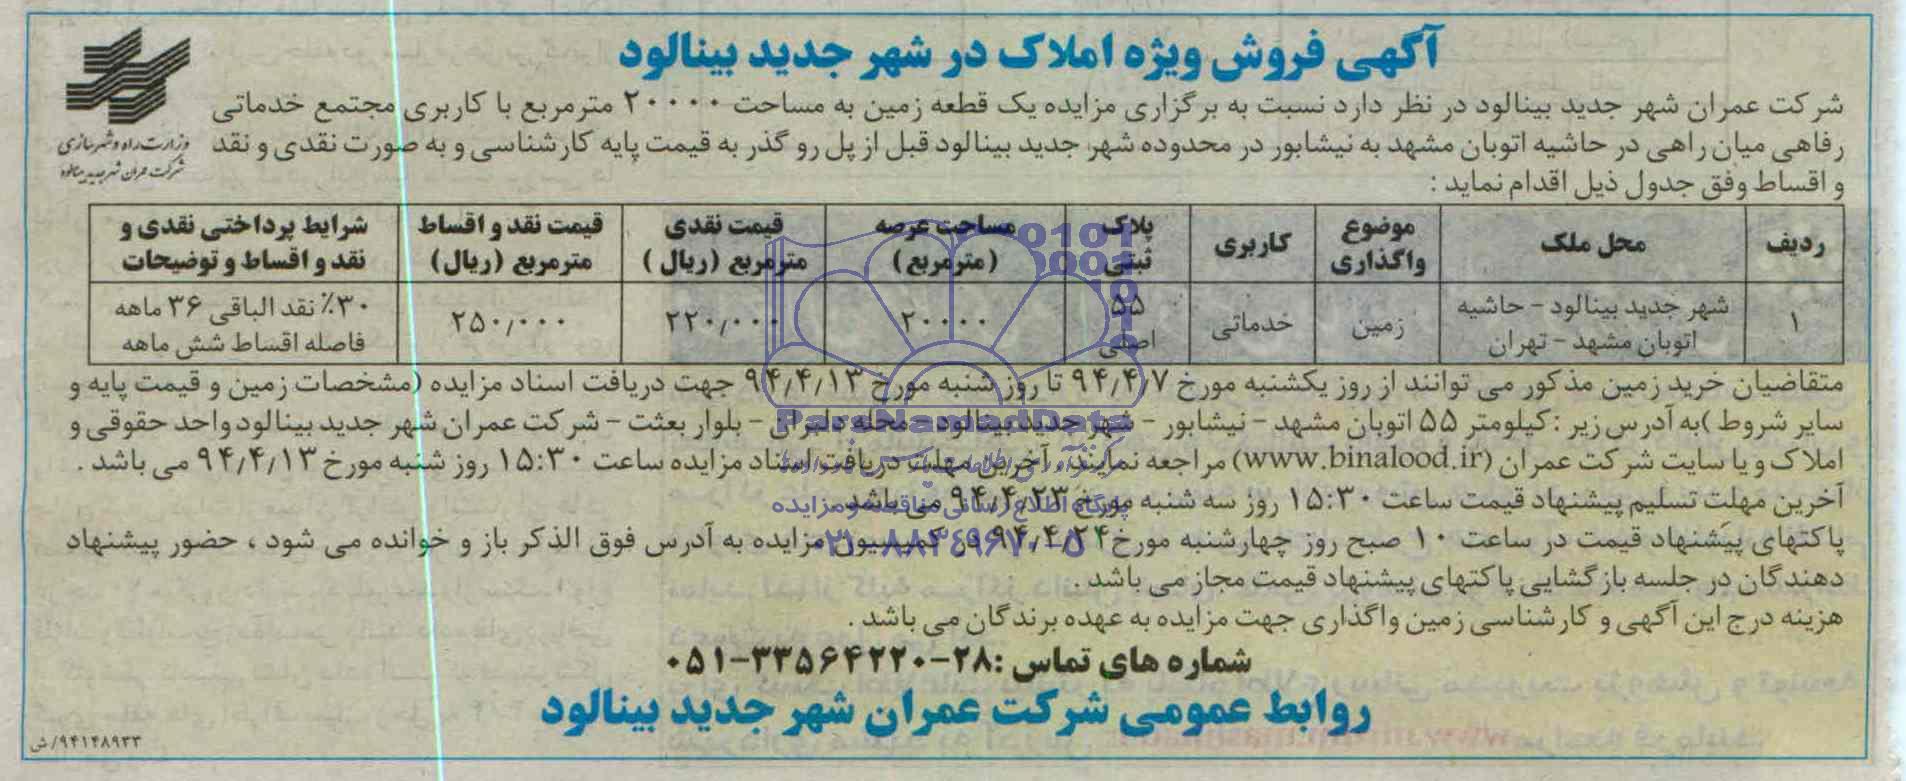 آگهی فروش ویژه املاک در شهر جدید بینالود
وزارت راه و شهرسازی
شرکت عمران شهر جدید بینالود
شرکت عمران شهر جدید بینالود در نظر دارد نسبت به برگزاری مزایده یک قطعه زمین به مساحت ۲۰۰۰۰ مترمربع با کاربری مجتمع خدماتی
رفاهی میان راهی در حاشیه اتوبان مشهد به نیشابور در محدوده شهر جدید بینالود قبل از پل رو گذر به قیمت پایه کارشناسی و به صورت نقدی و نقد
و اقساط وفق جدول ذیل اقدام نماید :
ردیف | محل ملک | موضوع واگذاری | کاربری | پلاک ثبتی | مساحت عرصه (مترمربع) | قیمت نقدی مترمربع (ریال) | قیمت نقد و اقساط مترمربع (ریال) | شرایط پرداختی نقدی و نقد و اقساط و توضیحات
۱ | شهر جدید بینالود - حاشیه اتوبان مشهد - تهران | زمین | خدماتی | ۵۵ اصلی | ۲۰۰۰۰ | ۲۲۰/۰۰۰ | ۲۵۰/۰۰۰ | ۳۰٪ نقد الباقی ۳۶ ماهه فاصله اقساط شش ماهه
متقاضیان خرید زمین مذکور می توانند از روز یکشنبه مورخ ۹۴/۴/۷ تا روز شنبه مورخ ۹۴/۴/۱۳ جهت دریافت اسناد مزایده (مشخصات زمین و قیمت پایه و
سایر شروط )به آدرس زیر :کیلومتر ۵۵ اتوبان مشهد - نیشابور - شهر جدید بینالود - محله دلبران - بلوار بعثت - شرکت عمران شهر جدید بینالود واحد حقوقی و
املاک و یا سایت شرکت عمران (www.binalood.ir) مراجعه نمایند. آخرین مهلت دریافت اسناد مزایده ساعت ۱۵:۳۰ روز شنبه مورخ ۹۴/۴/۱۳ می باشد .
آخرین مهلت تسلیم پیشنهاد قیمت ساعت ۱۵:۳۰ روز سه شنبه مورخ ۹۴/۴/۲۳ می باشد.
پاکتهای پیشنهاد قیمت در ساعت ۱۰ صبح روز چهارشنبه مورخ ۹۴/۴/۲۴ در کمیسیون مزایده به آدرس فوق الذکر باز و خوانده می شود ، حضور پیشنهاد
دهندگان در جلسه بازگشایی پاکتهای پیشنهاد قیمت مجاز می باشد .
هزینه درج این آگهی و کارشناسی زمین واگذاری جهت مزایده به عهده برندگان می باشد .
شماره های تماس :۲۸-۳۳۵۶۴۲۲۰-۰۵۱
روابط عمومی شرکت عمران شهر جدید بینالود
۹۴۱۴۸۹۳۳/ش
ParsNamadData
پایگاه اطلاع رسانی مناقصه و مزایده
۰۲۱-۸۸۳۴۹۶۷۰-۵